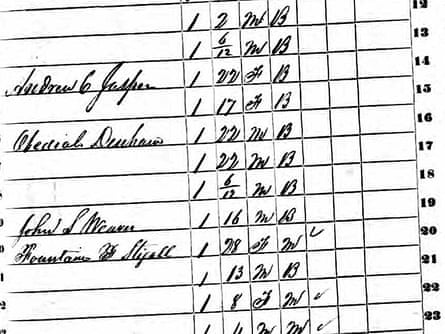 12
1 2 M B
13
1 6/12 M B
14
Andrew C Jasper 1 22 F B
15
1 17 F B
16
1 22 M B
17
1 22 M B
18
1 6/12 M B
19
John S Weaver 1 16 M B
20
Fountain F Stigall 1 28 F M ✓
21
1 13 M B
22
1 8 F M ✓
23
1 4 M M ✓